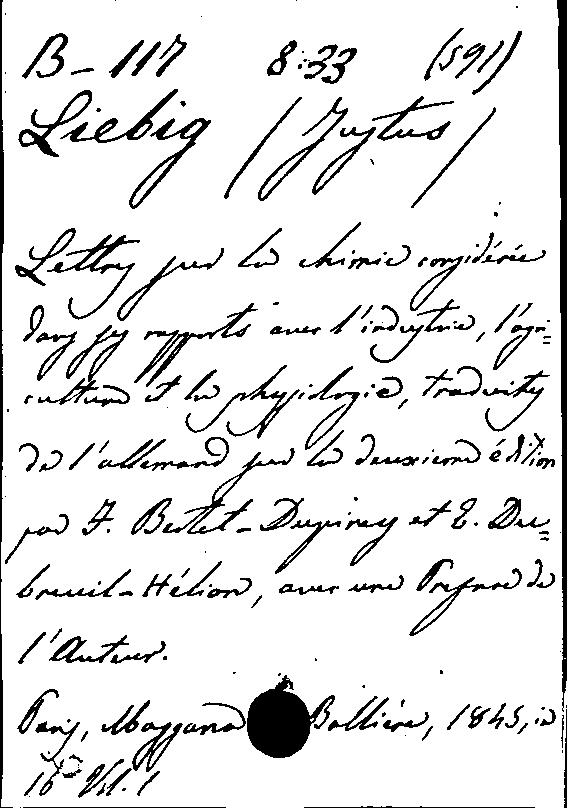 B-117 8:33 (591)
Liebig (Justus)
Lettres sur la chimie considérée
dans ses rapports avec l'industrie, l'agri=
culture et la physiologie, traduites
de l'allemand sur la deuxieme édition
par F. Bertet-Dupiney et E. Du=
breuil-Hélion, avec une Preface de
l'Auteur.
Paris, Baillière, 1845, in
16° Vol. 1